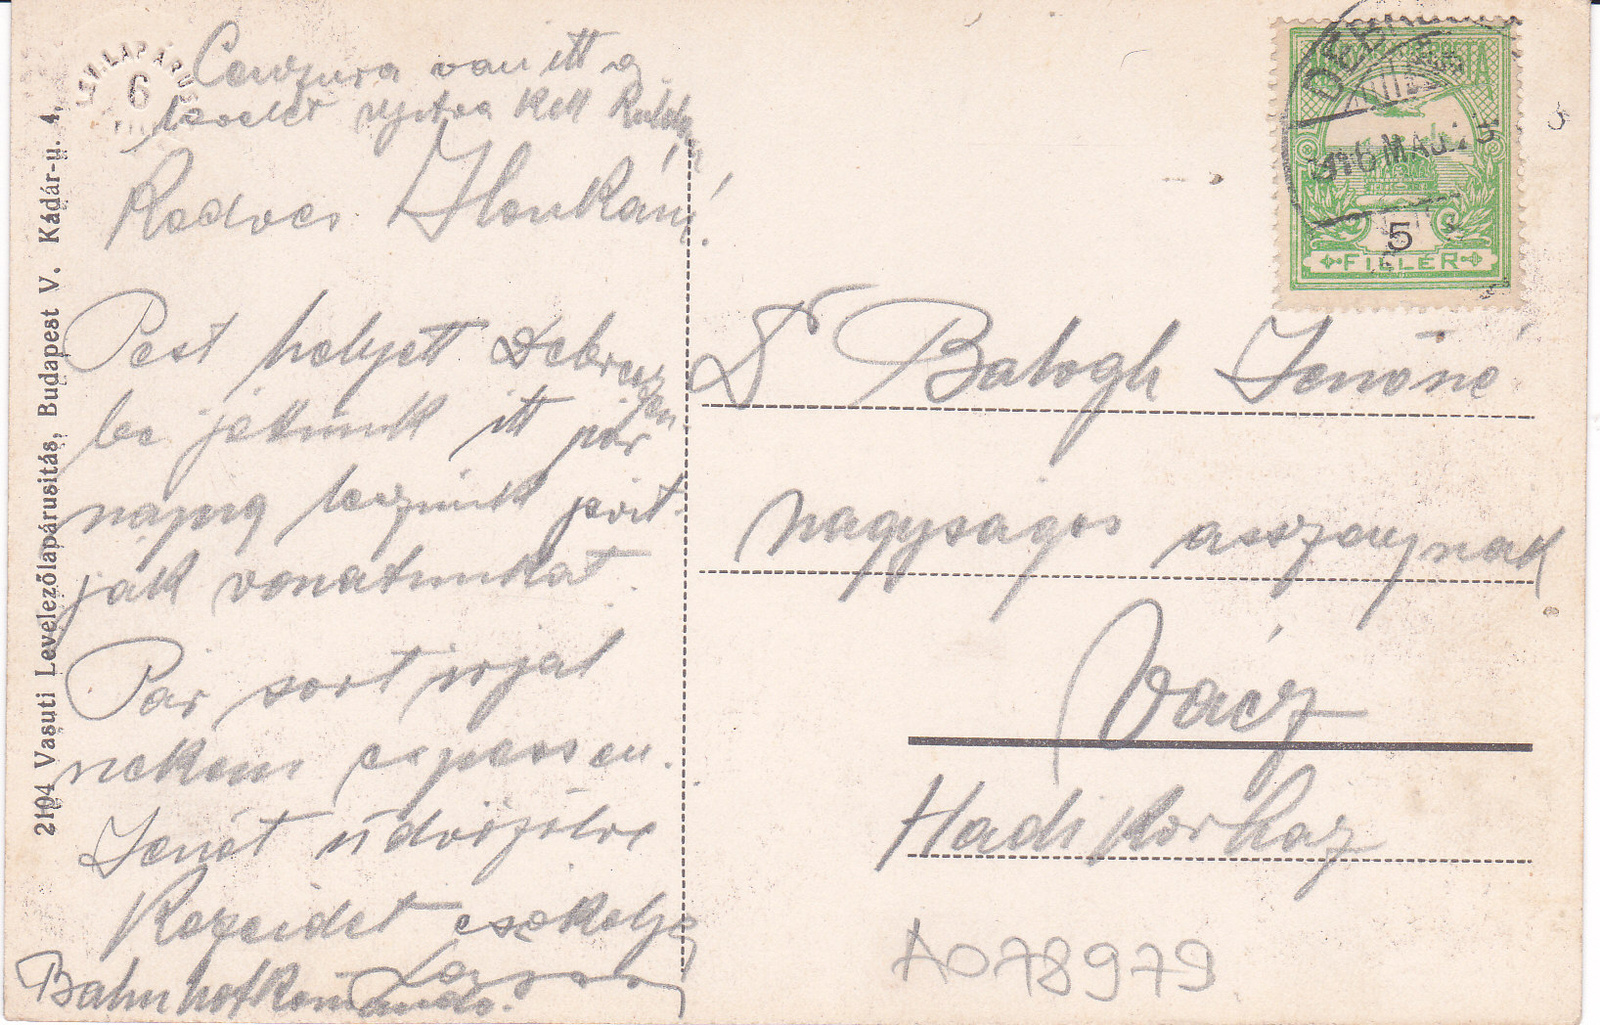 Cenzura van itt a
levelet nyitva kell küldeni
Kedves Ilonkám!
Pest helyett Debreczen
be jöttünk itt pár
napig leszünk javit-
ják vonatunkat.
Pár sort irjál
nekem expressen.
Jenőt üdvözölve
Kezeidet csókolja
Bahnhofkommando.
2194 Vasuti Levelezőlapárusitás, Budapest V. Kádár-u. 4.
LEV.LAPÁRUS
6
916 MÁJ.
5
FILLÉR
Dr Balogh Jenőné
nagyságos asszonynak
Vácz
Hadi Kórház
A078979